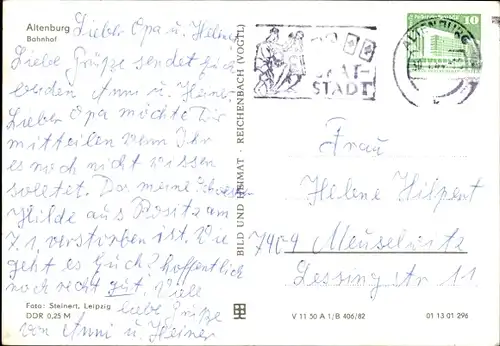 Altenburg
Bahnhof
Lieber Opa u. Helene
Liebe Grüße sendet Euch
Anni u. Heiner.
Lieber Opa möchte Dir
mitteilen wenn Ihr
es noch nicht wissen
solltet. Das meine Schwester
Hilde aus Rositz am
7.1. verstorben ist. Wie
geht es Euch? hoffentlich
noch recht gut. Viele
liebe Grüße
von Anni u. Heiner
Foto: Steinert, Leipzig
DDR 0,25 M
BILD UND HEIMAT · REICHENBACH (VOGTL)
SKAT
STADT
ALTENBURG
10
Frau
Helene Hilpert
7404 Meuselwitz
Lessingstr 11
V 11 50 A 1/B 406/82
01 13 01 296